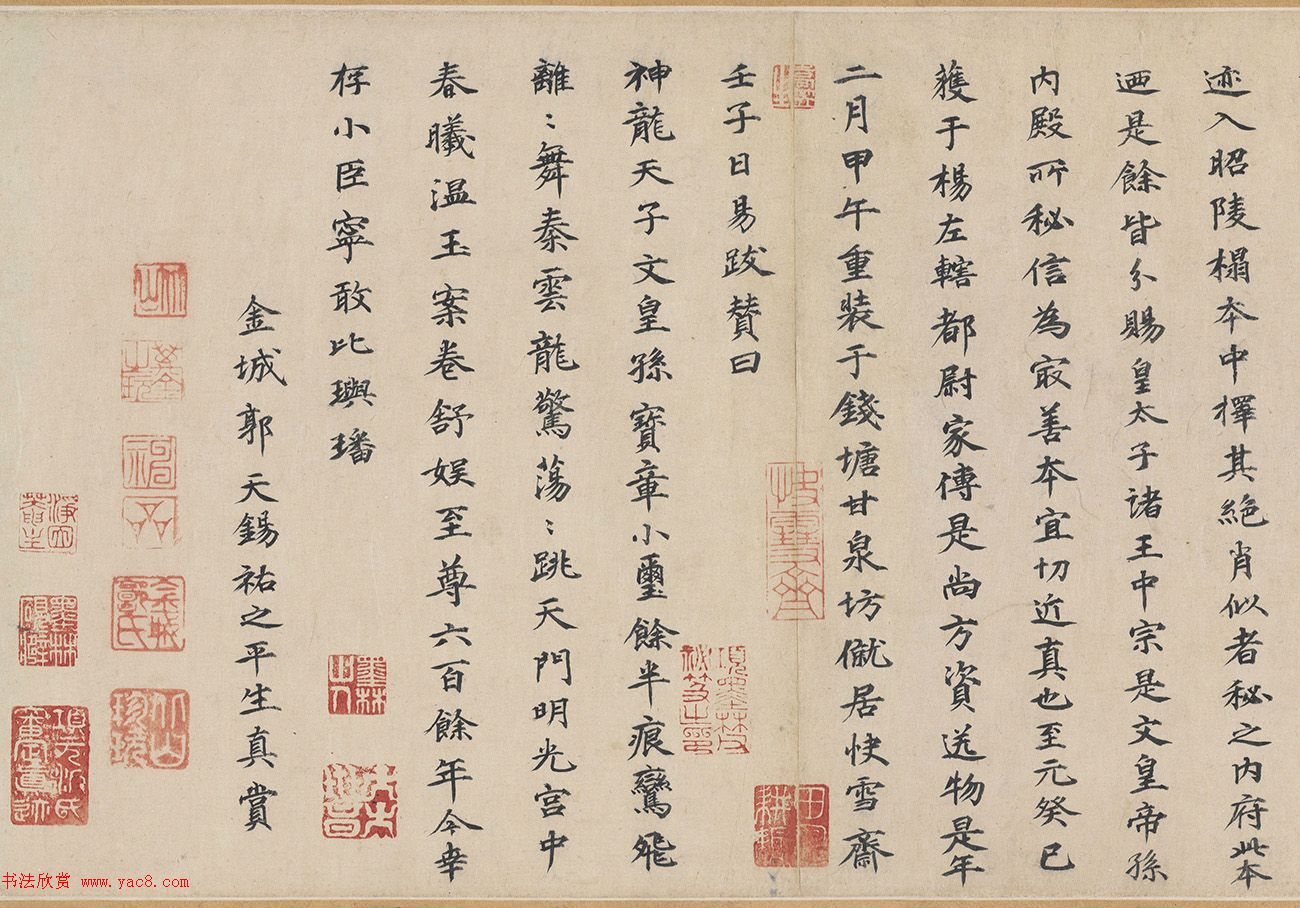 迹入昭陵榻本中擇其絕肖似者秘之內府此本
迺是餘皆分賜皇太子諸王中宗是文皇帝孫
内殿所秘信為㝡善本宜切近真也至元癸巳
獲于楊左轄都尉家傳是尚方資送物是年
二月甲午重装于錢塘甘泉坊僦居快雪齋
壬子日易跋贊曰
神龍天子文皇孫寳章小璽餘半痕鸞飛
離〻舞秦雲龍驚蕩〻跳天門明光宫中
春曦温玉案卷舒娱至尊六百餘年今幸
存小臣寧敢比璵璠
金城郭天錫祐之平生真賞
項墨林父秘笈之印
墨林山人
金城郭氏
项元汴氏審定真迹
书法欣赏 www.yac8.com